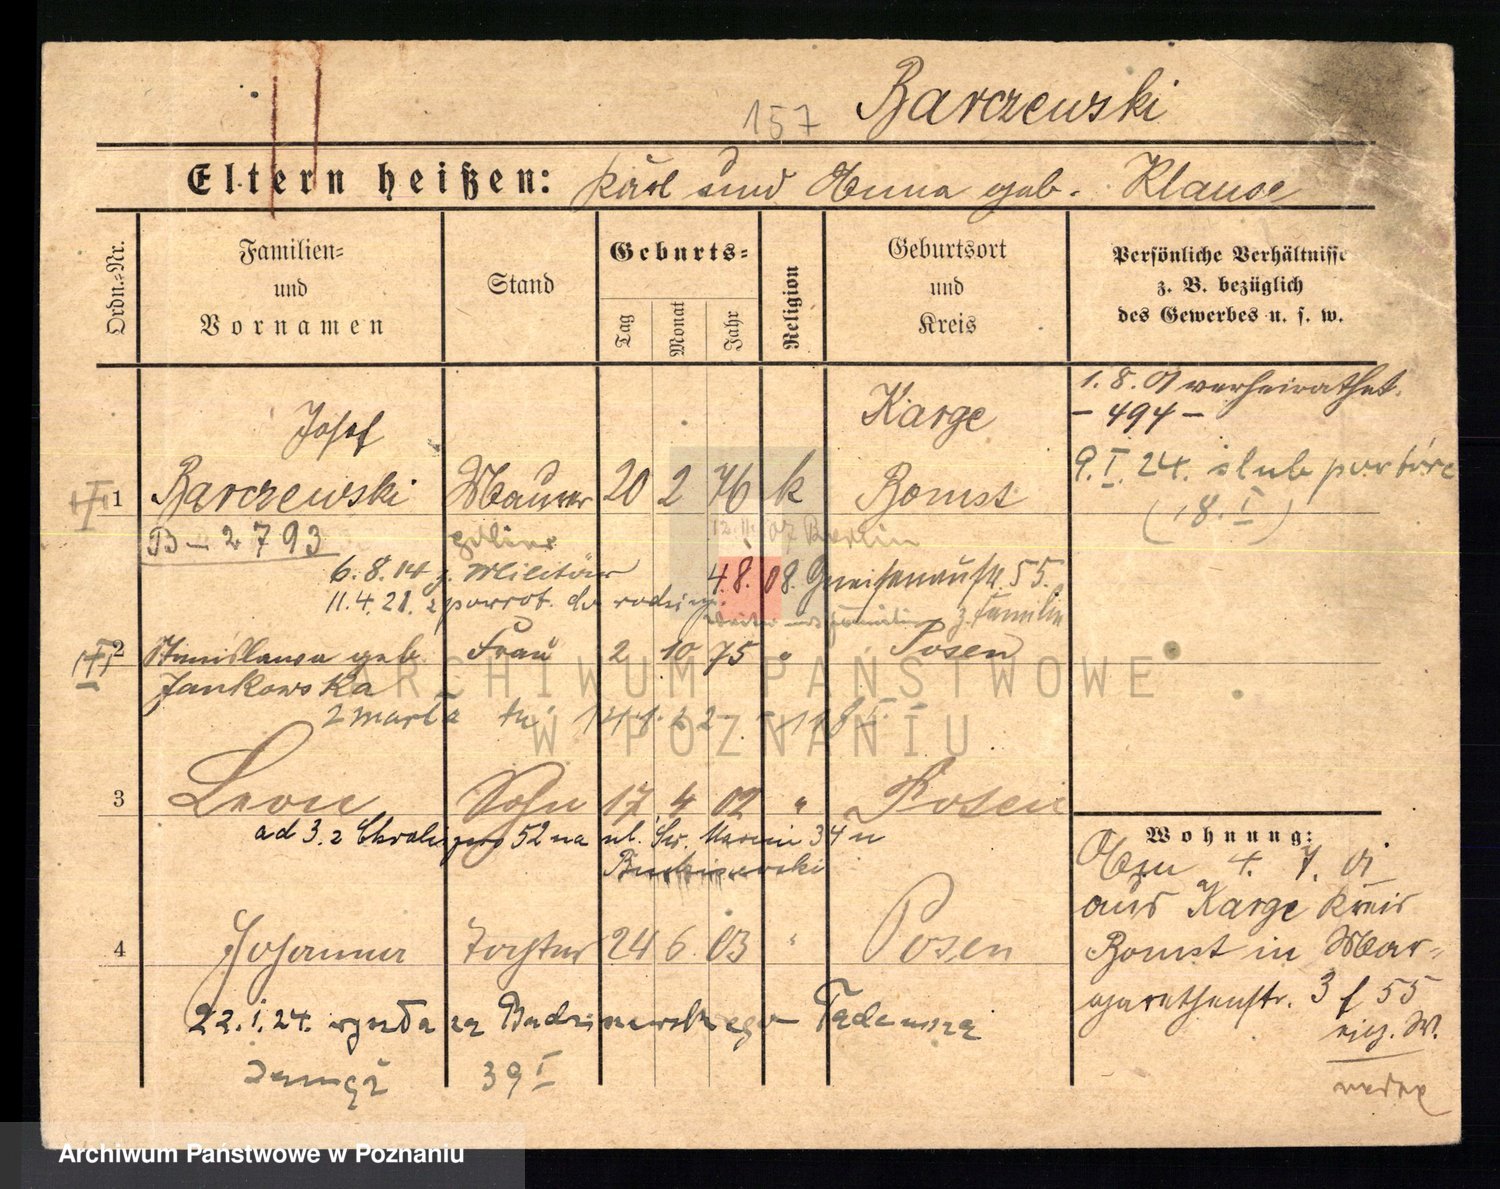 Barczewski
157
Eltern heißen: Karl und Anna geb. Klause
Ordn.=Nr.
Familien=
und
Vornamen
Stand
Geburts=
Tag
Monat
Jahr
Religion
Geburtsort
und
Kreis
Persönliche Verhältnisse
z. B. bezüglich
des Gewerbes u. s. w.
1
Josef
Barczewski
Maurer
20 2 76 k
Karge
Bomst
1. 8. 01 verheirathet.
- 494 -
9. I. 24. ślub
(18. I)
B - 2793
12. 07 Berlin
6. 8. 14 z. Militär
4. 8. 08. Gneisenaustr. 55.
11. 4. 21. z powrot. do rodziny
z. Familie
2
Stanislawa geb.
Jankowska
Frau
2 10 75 "
Posen
zmarła
3
Leon
Sohn
17 4 02 "
Posen
ad 3. z 52 na ul. Św. Marcin 34 u
4
Johanna
Tochter
24 6 03 "
Posen
22. 1. 24. wyszła za Tadeusza
39 I
Wohnung:
4. 7. 01
aus Karge Kreis
Bomst in Mar-
garethenstr. 3 f 55
ARCHIWUM PAŃSTWOWE
W POZNANIU
Archiwum Państwowe w Poznaniu